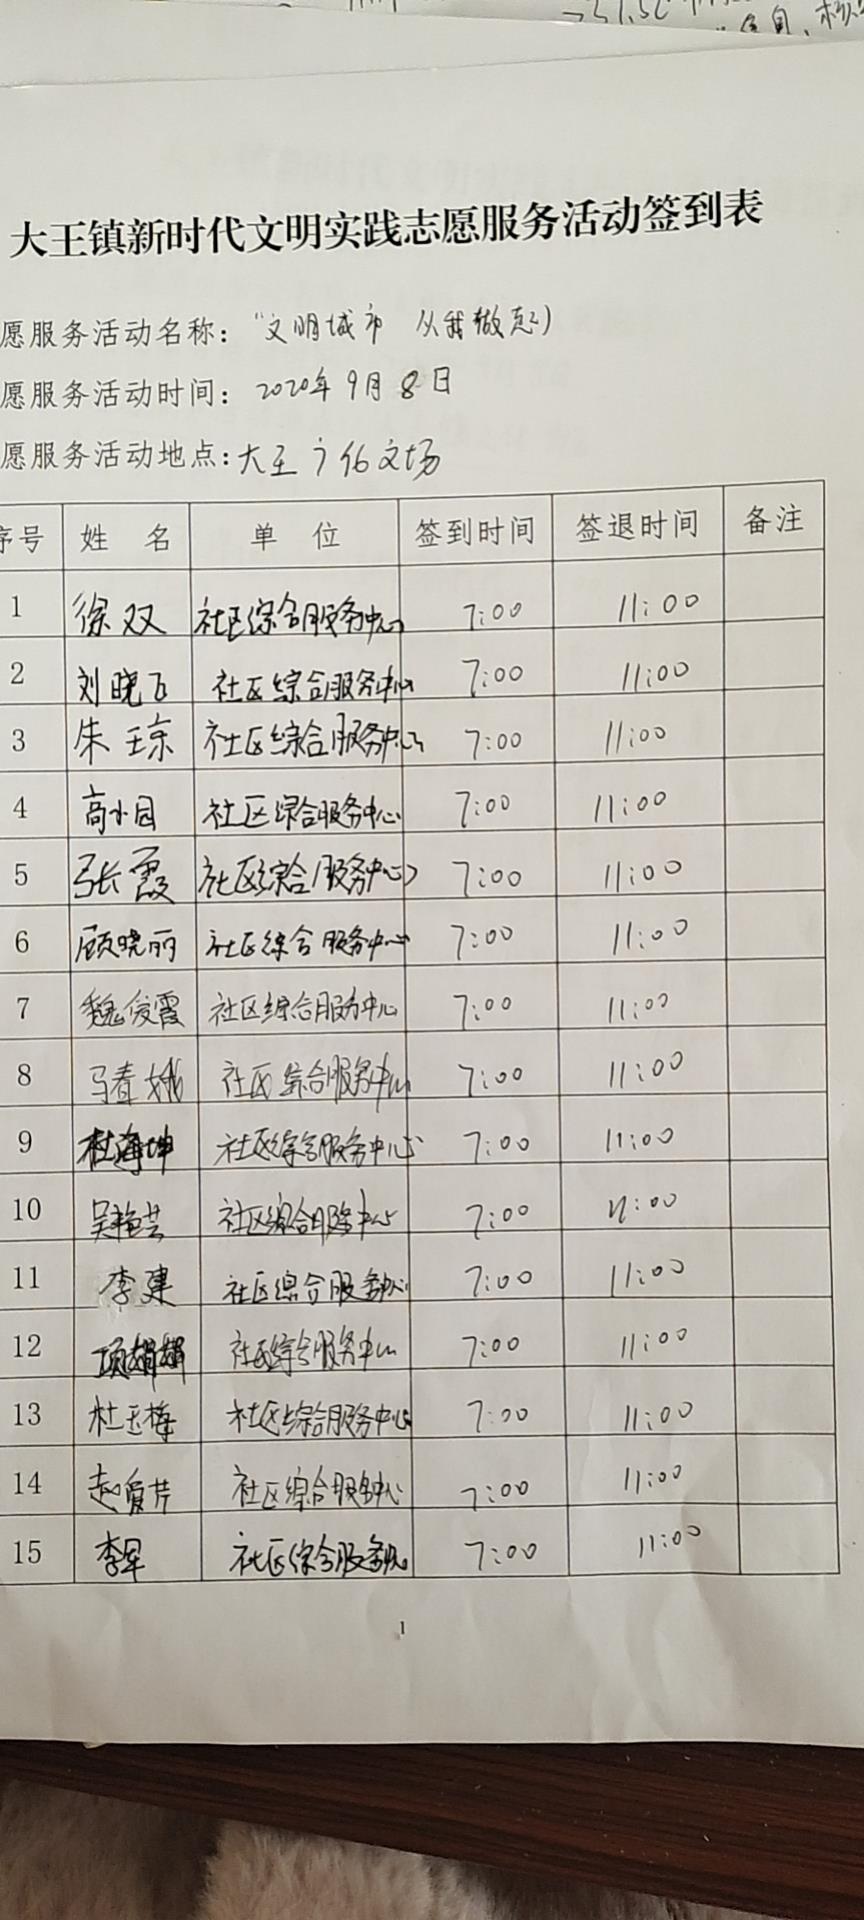 大王镇新时代文明实践志愿服务活动签到表
愿服务活动名称：“文明城市 从我做起）
愿服务活动时间：2020年9月8日
愿服务活动地点：大王广化文场
序号 姓 名 单 位 签到时间 签退时间 备注
1 徐双 社区综合服务中心 7:00 11:00
2 刘晓飞 社区综合服务中心 7:00 11:00
3 朱琼 社区综合服务中心 7:00 11:00
4 高小园 社区综合服务中心 7:00 11:00
5 张霞 社区综合服务中心 7:00 11:00
6 顾晓丽 社区综合服务中心 7:00 11:00
7 魏俊霞 社区综合服务中心 7:00 11:00
8 马春娥 社区综合服务中心 7:00 11:00
9 杜海坤 社区综合服务中心 7:00 11:00
10 吴艳芸 社区综合服务中心 7:00 11:00
11 李建 社区综合服务中心 7:00 11:00
12 项娟娟 社区综合服务中心 7:00 11:00
13 杜玉梅 社区综合服务中心 7:00 11:00
14 赵爱芹 社区综合服务中心 7:00 11:00
15 李军 社区综合服务中心 7:00 11:00
1